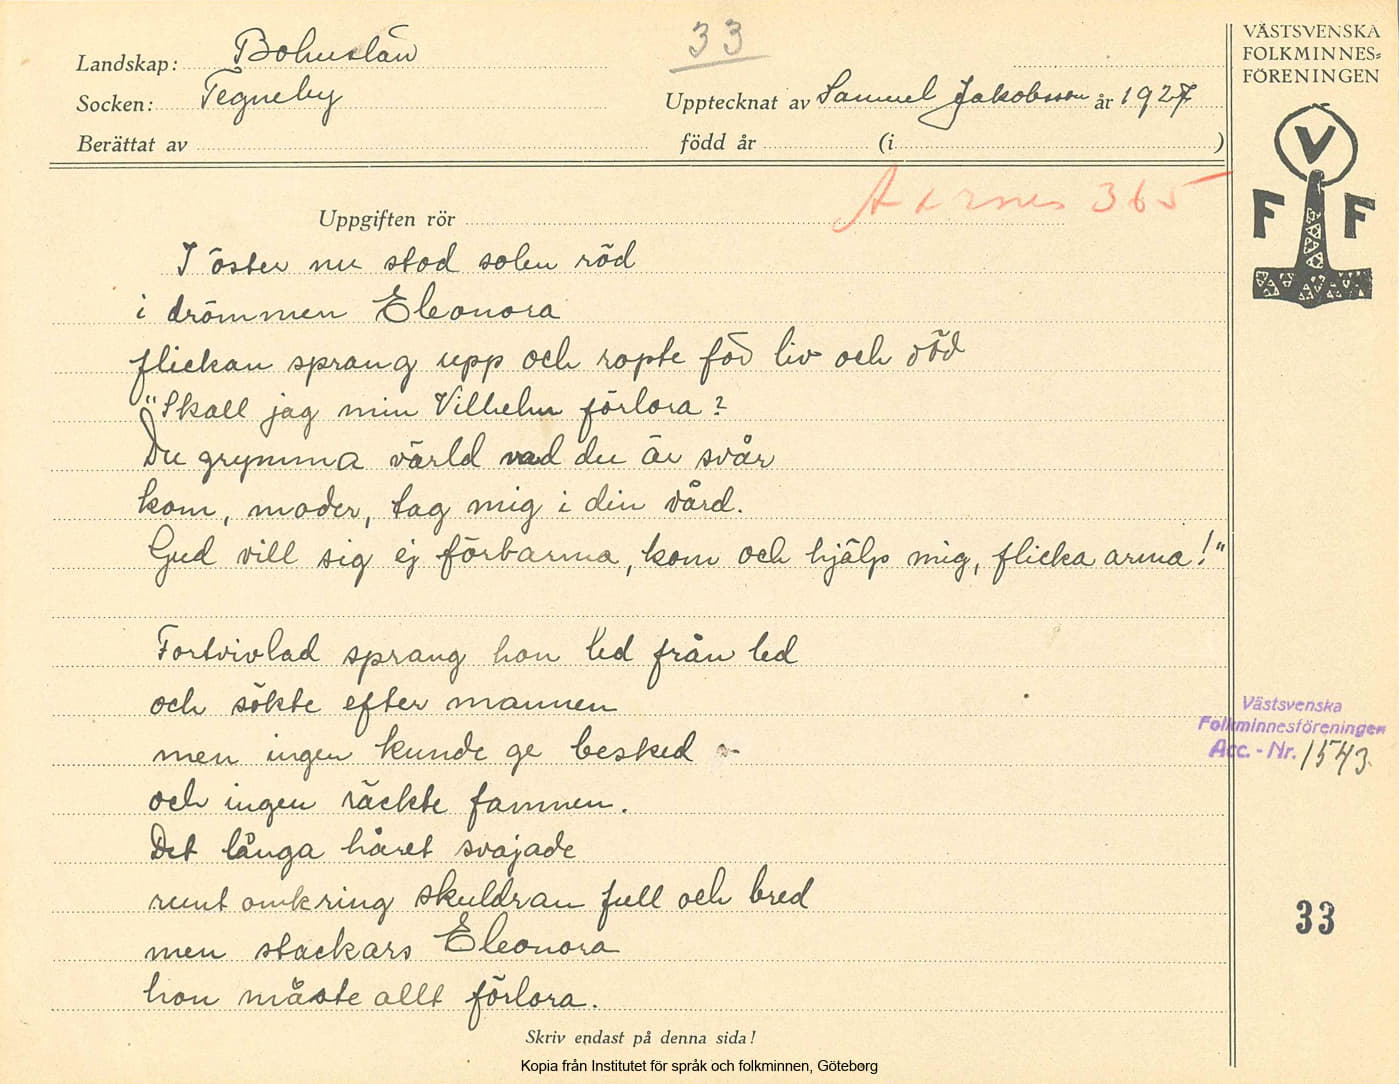 33
Landskap: Bohuslän
Socken: Tegneby
Upptecknat av Samuel Jakobsson år 1927
Berättat av
född år (i )
VÄSTSVENSKA
FOLKMINNES=
FÖRENINGEN
V
F F
365
Uppgiften rör
I öster nu stod solen röd
i drömmen Eleonora
flickan sprang upp och ropte för liv och död
"Skall jag min Vilhelm förlora?
Du grymma värld vad du är svår
kom, moder, tag mig i din vård.
Gud vill sig ej förbarma, kom och hjälp mig, flicka arma!"
Fortvivlad sprang hon led från led
och sökte efter mannen
men ingen kunde ge besked
och ingen räckte famnen.
Det långa håret svajade
runt omkring skuldran full och bred
men stackars Eleonora
hon måste allt förlora.
Västsvenska
Folkminnesföreningen
Acc. - Nr. 1543
33
Skriv endast på denna sida!
Kopia från Institutet för språk och folkminnen, Göteborg